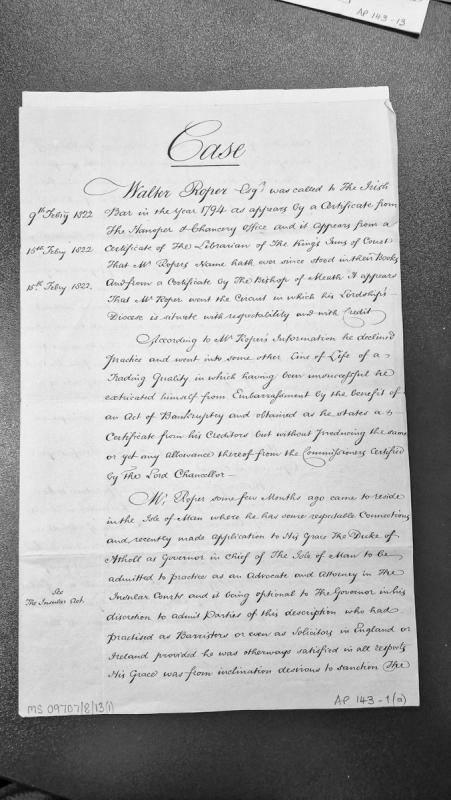 AP 143-13
Case
Walter Roper Esqr. was called to The Irish
9th Febry 1822 Bar in the Year 1794 as appears by a Certificate from
The Hanaper & Chancery Office and it appears from a
15th Febry 1822 Certificate of The Librarian of The King's Inns of Court
That Mr Ropers Name hath ever since stood in their Books
15th Febry 1822. And from a Certificate by The Bishop of Meath It appears
That Mr Roper went the Circuit in which his Lordship's
Diocese is situate with respectability and with Credit
According to Mr Roper's Information he declined
Practice and went into some other Line of Life of a
Trading Quality in which having been unsuccessful he
extricated himself from Embarrassment by the benefit of
an Act of Bankruptcy and obtained as he states a
Certificate from his Creditors but without Producing the same
or yet any allowance thereof from the Commissioners Certified
by The Lord Chancellor
Mr. Roper some few Months ago came to reside
in the Isle of Man where he has some respectable Connections
and recently made Application to His Grace The Duke of
Atholl as Governor in Chief of The Isle of Man to be
admitted to practice as an Advocate and Attorney in The
See
The Insular Act. Insular Courts and it being optional to The Governor in his
discretion to admit Parties of this description who had
practised as Barristers or even as Solicitors in England or
Ireland provided he was otherways satisfied in all respects
His Grace was from inclination desirous to sanction The
MS 09707/8/13(1)
AP 143-1(a)